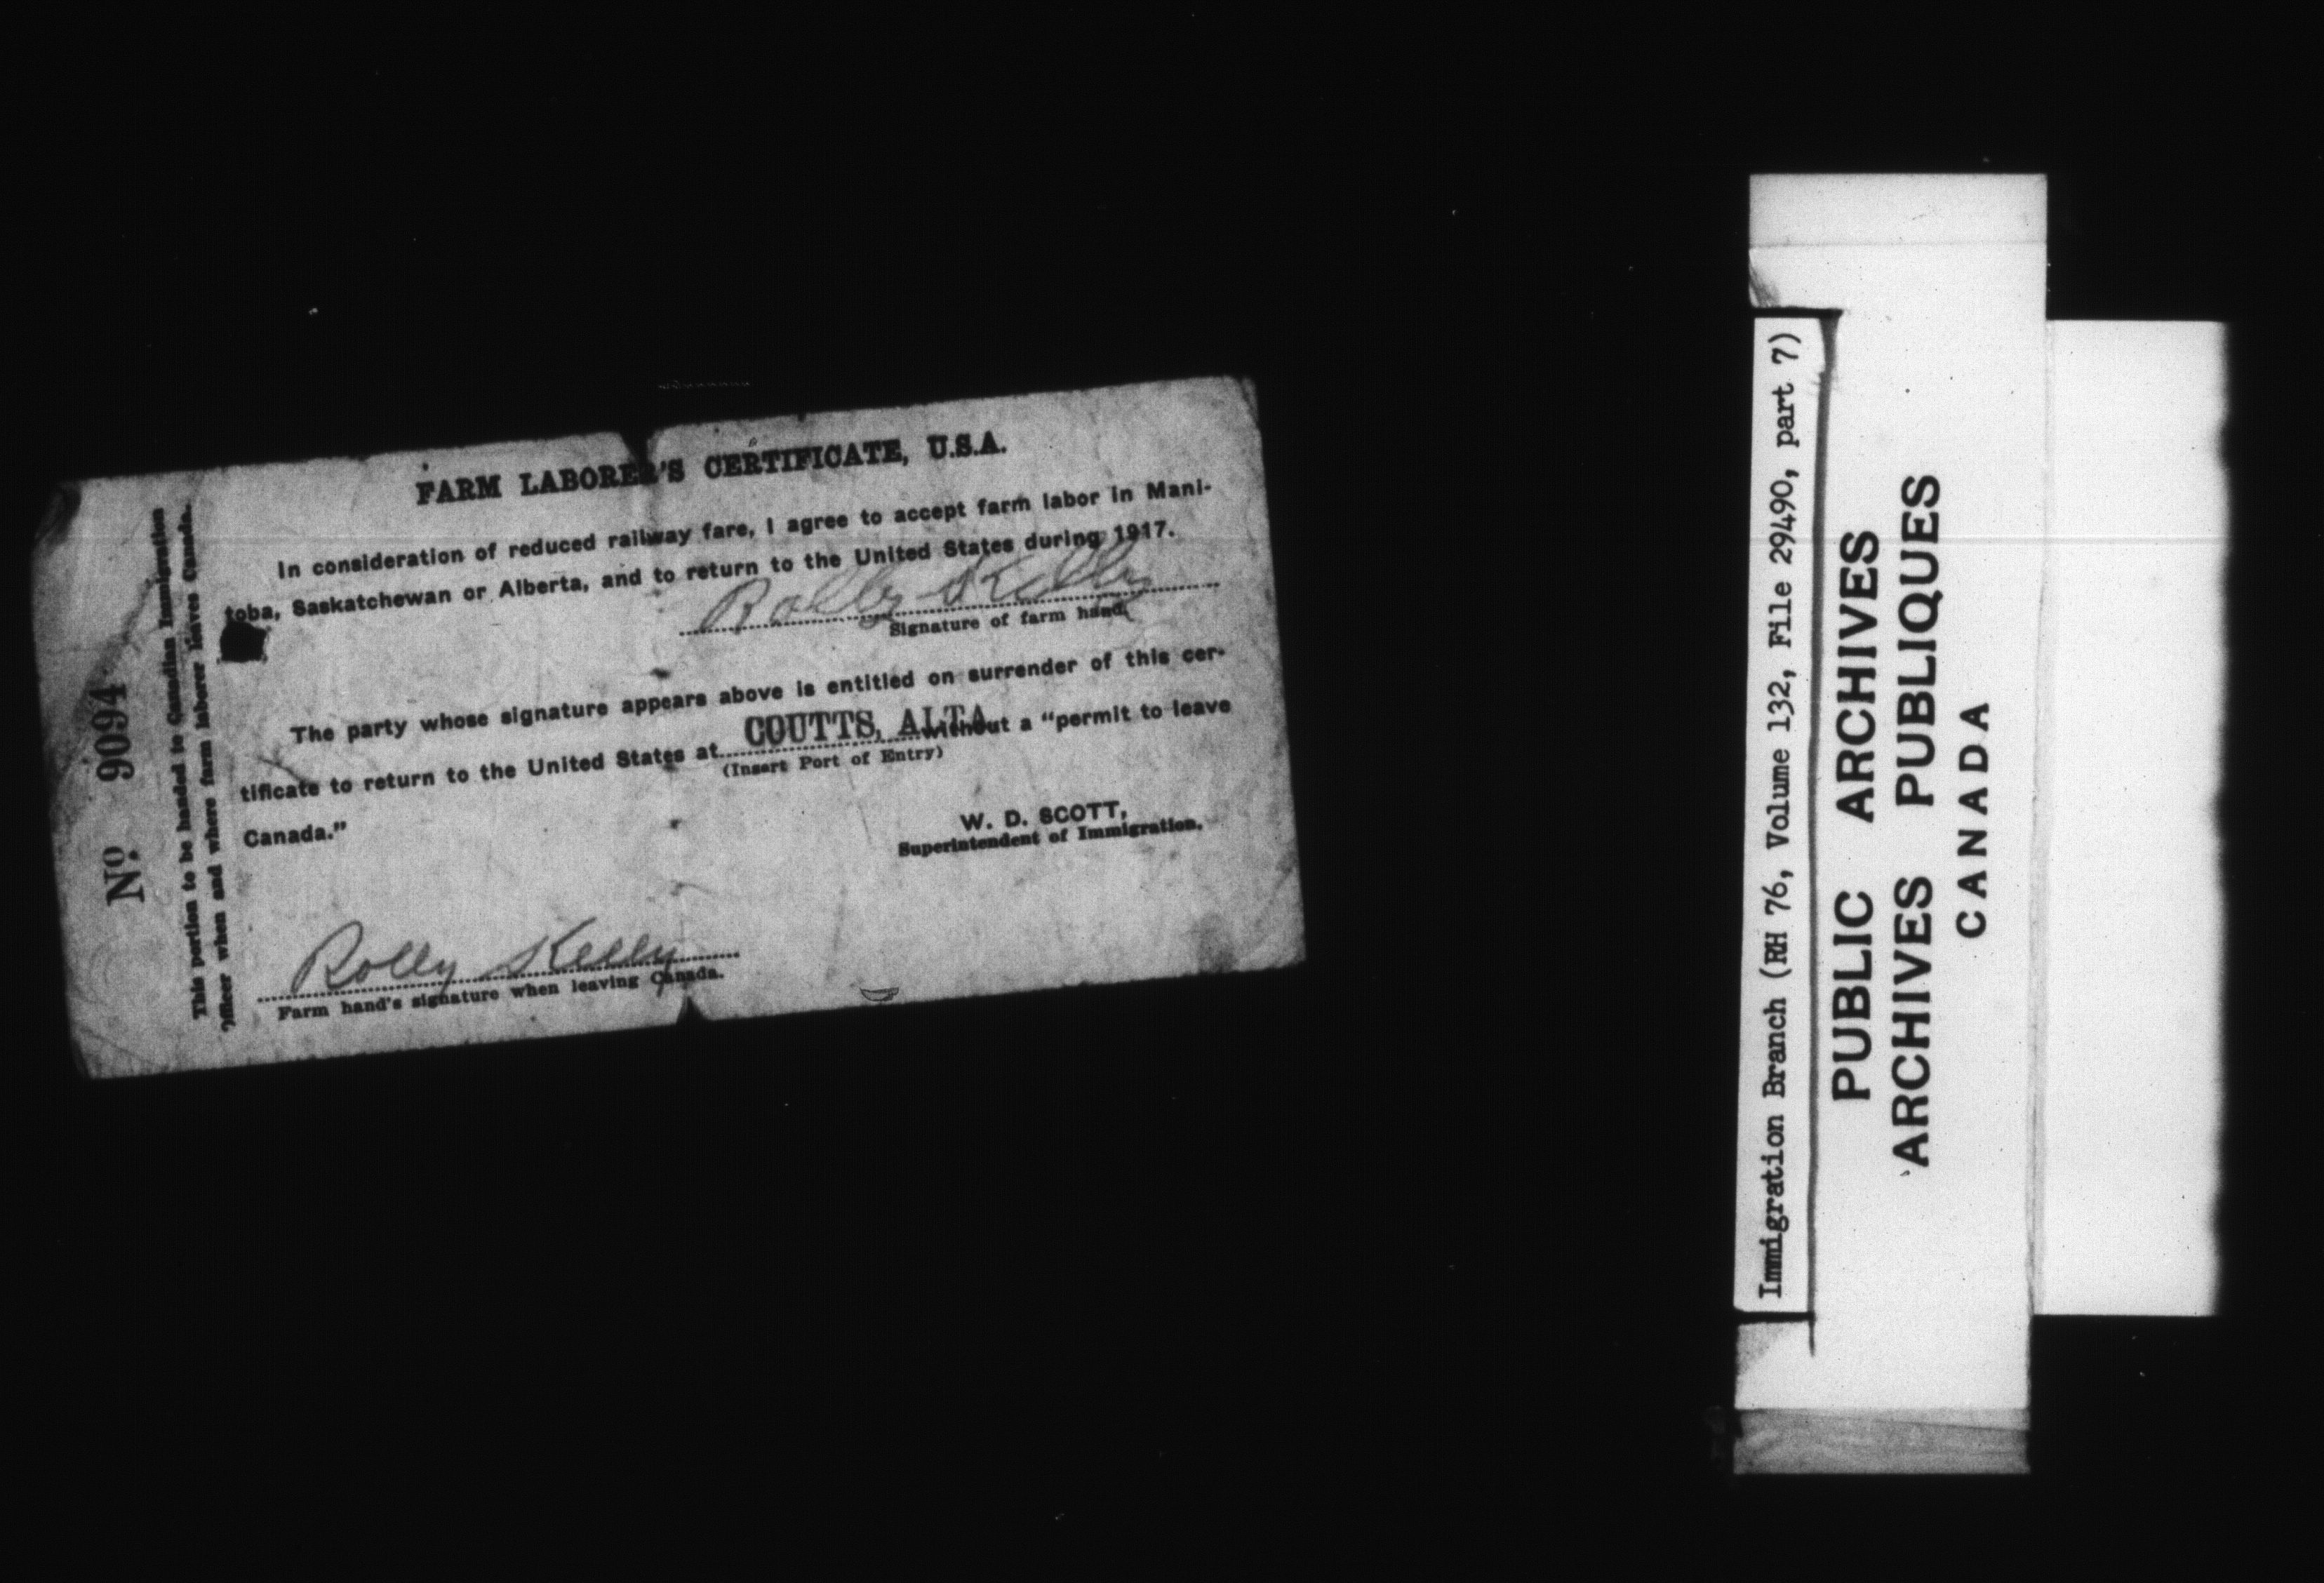 FARM LABORER'S CERTIFICATE, U.S.A.
In consideration of reduced railway fare, I agree to accept farm labor in Mani-
toba, Saskatchewan or Alberta, and to return to the United States during 1917.
Rolly Kelly
Signature of farm hand.
The party whose signature appears above is entitled on surrender of this cer-
tificate to return to the United States at COUTTS, ALTA. without a "permit to leave
(Insert Port of Entry)
Canada."
W. D. SCOTT,
Superintendent of Immigration.
Rolly Kelly
Farm hand's signature when leaving Canada.
No. 9094
This portion to be handed to Canadian Immigration
Officer when and where farm laborer leaves Canada.
Immigration Branch (RH 76, Volume 132, File 29490, part 7)
PUBLIC ARCHIVES
ARCHIVES PUBLIQUES
CANADA